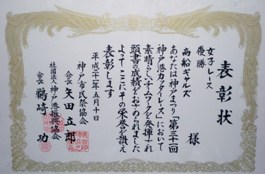 表彰状
女子レース
優勝
商船ギャルズ 様
あなたは神戸まつり「第三十一回
神戸港カッターレース」において
素晴らしいチームワークを発揮され
頭書の成績をおさめられました
よってここにその栄誉を讃え
表彰します
平成二十一年五月十日
神戸市民祭協会
会長 矢田立郎
社団法人 神戸港振興協会
会長 鶴崎功